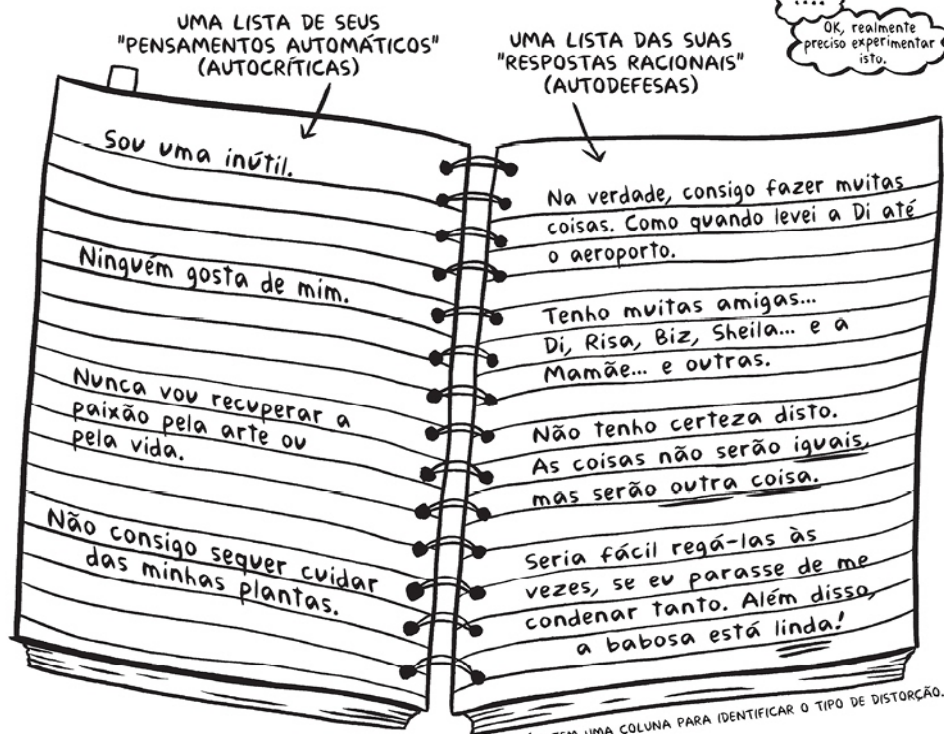 UMA LISTA DE SEUS
"PENSAMENTOS AUTOMÁTICOS"
(AUTOCRÍTICAS)
UMA LISTA DAS SUAS
"RESPOSTAS RACIONAIS"
(AUTODEFESAS)
....
OK, realmente
preciso experimentar
isto.
Sou uma inútil.
Ninguém gosta de mim.
Nunca vou recuperar a
paixão pela arte ou
pela vida.
Não consigo sequer cuidar
das minhas plantas.
Na verdade, consigo fazer muitas
coisas. Como quando levei a Di até
o aeroporto.
Tenho muitas amigas...
Di, Risa, Biz, Sheila... e a
Mamãe... e outras.
Não tenho certeza disto.
As coisas não serão iguais,
mas serão outra coisa.
Seria fácil regá-las às
vezes, se eu parasse de me
condenar tanto. Além disso,
a babosa está linda!
TEM UMA COLUNA PARA IDENTIFICAR O TIPO DE DISTORÇÃO.